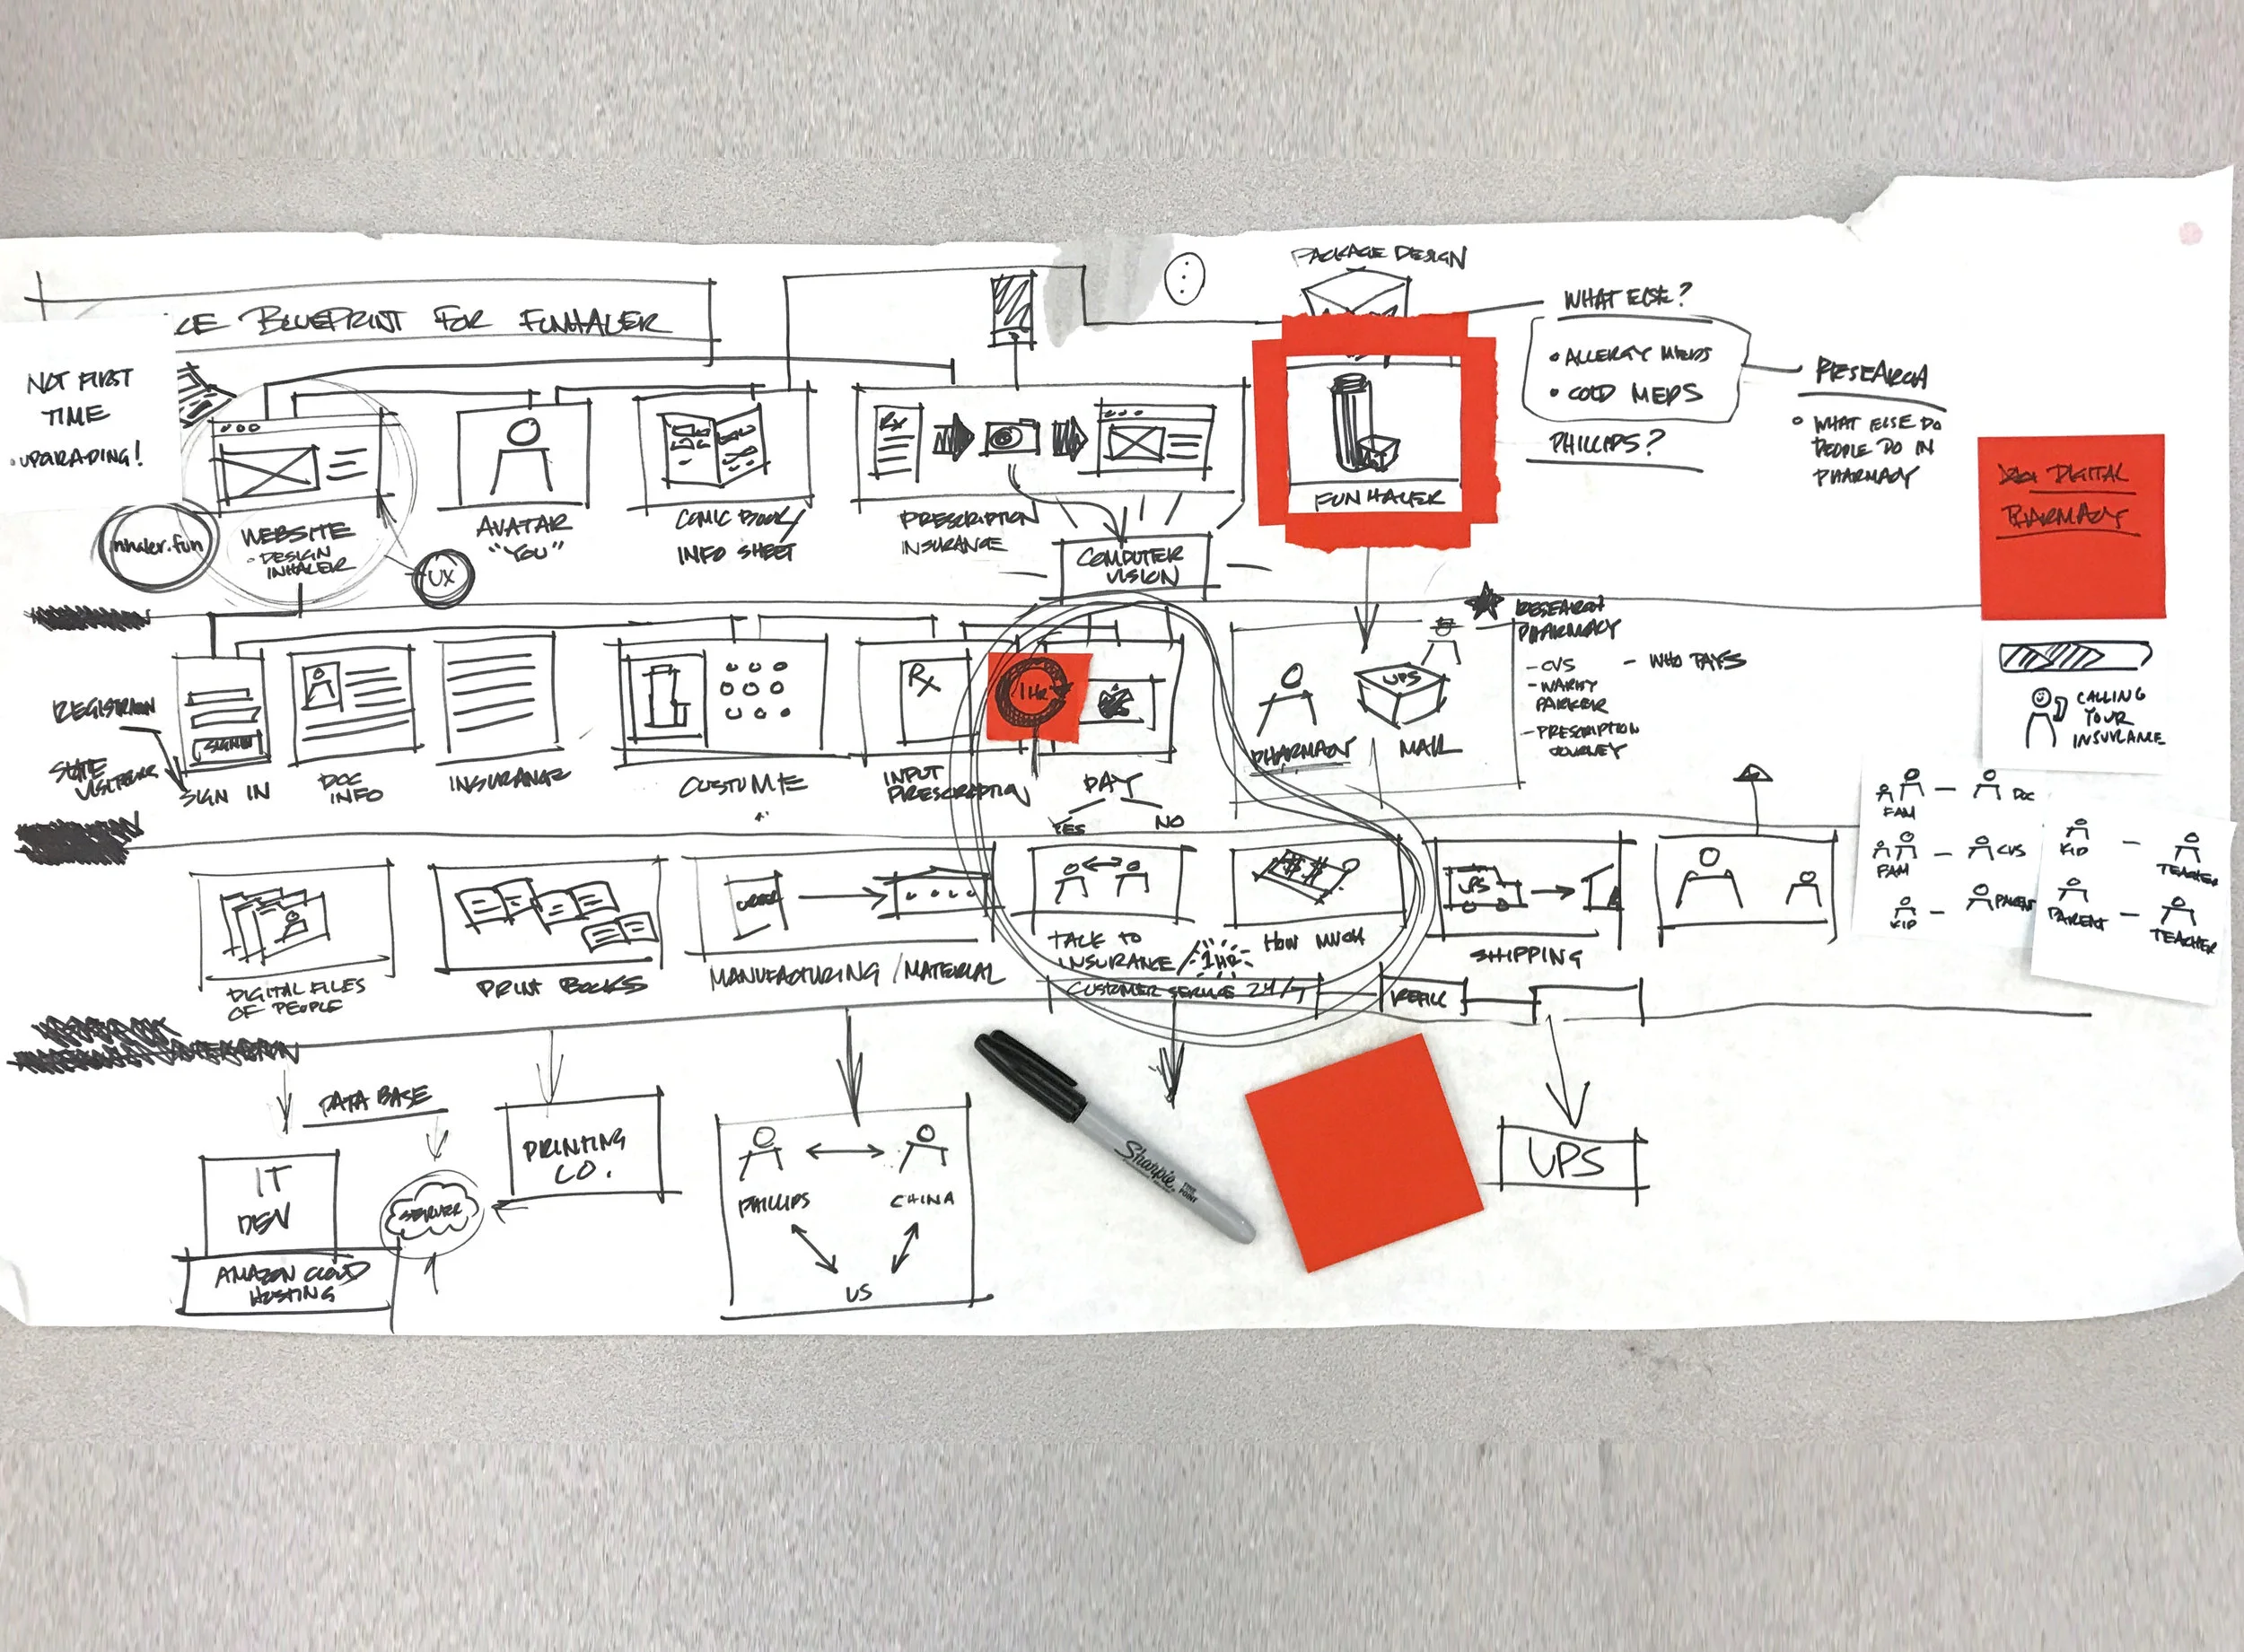 PACKAGE DESIGN
CE BLUEPRINT FOR FUNHALER
WHAT ELSE?
• ALLERGY MEDS
• COLD MEDS
PHILLIPS?
RESEARCH
• WHAT ELSE DO
PEOPLE DO IN
PHARMACY
NOT FIRST
TIME
• UPGRADING!
DIGITAL
PHARMACY
nhaler.fun
WEBSITE
• DESIGN
INHALER
UX
AVATAR
"YOU"
COMIC BOOK/
INFO SHEET
Rx
PRESCRIPTION
INSURANCE
COMPUTER
VISION
FUNHALER
RESEARCH
PHARMACY
- CVS
- WARBY
PARKER
- PRESCRIPTION
JOURNEY
- WHO PAYS
CALLING
YOUR
INSURANCE
SIGN IN
SIGN IN
DOC
INFO
INSURANCE
Rx
INPUT
PRESCRIPTION
1HR
PAY
YES
NO
PHARMACY
UPS
MAIL
FAM
DOC
FAM
CVS
KID
PARENT
KID
TEACHER
PARENT
TEACHER
DIGITAL FILES
OF PEOPLE
PRINT BOOKS
ORDER
MANUFACTURING/MATERIAL
TALK TO
INSURANCE/1HR
$$
HOW MUCH
CUSTOMER SERVICE 24/7
REFILL
UPS
SHIPPING
DATA BASE
IT
DEV
AMAZON CLOUD
HOSTING
SERVER
PRINTING
CO.
PHILLIPS
CHINA
US
Sharpie
FINE
POINT
UPS